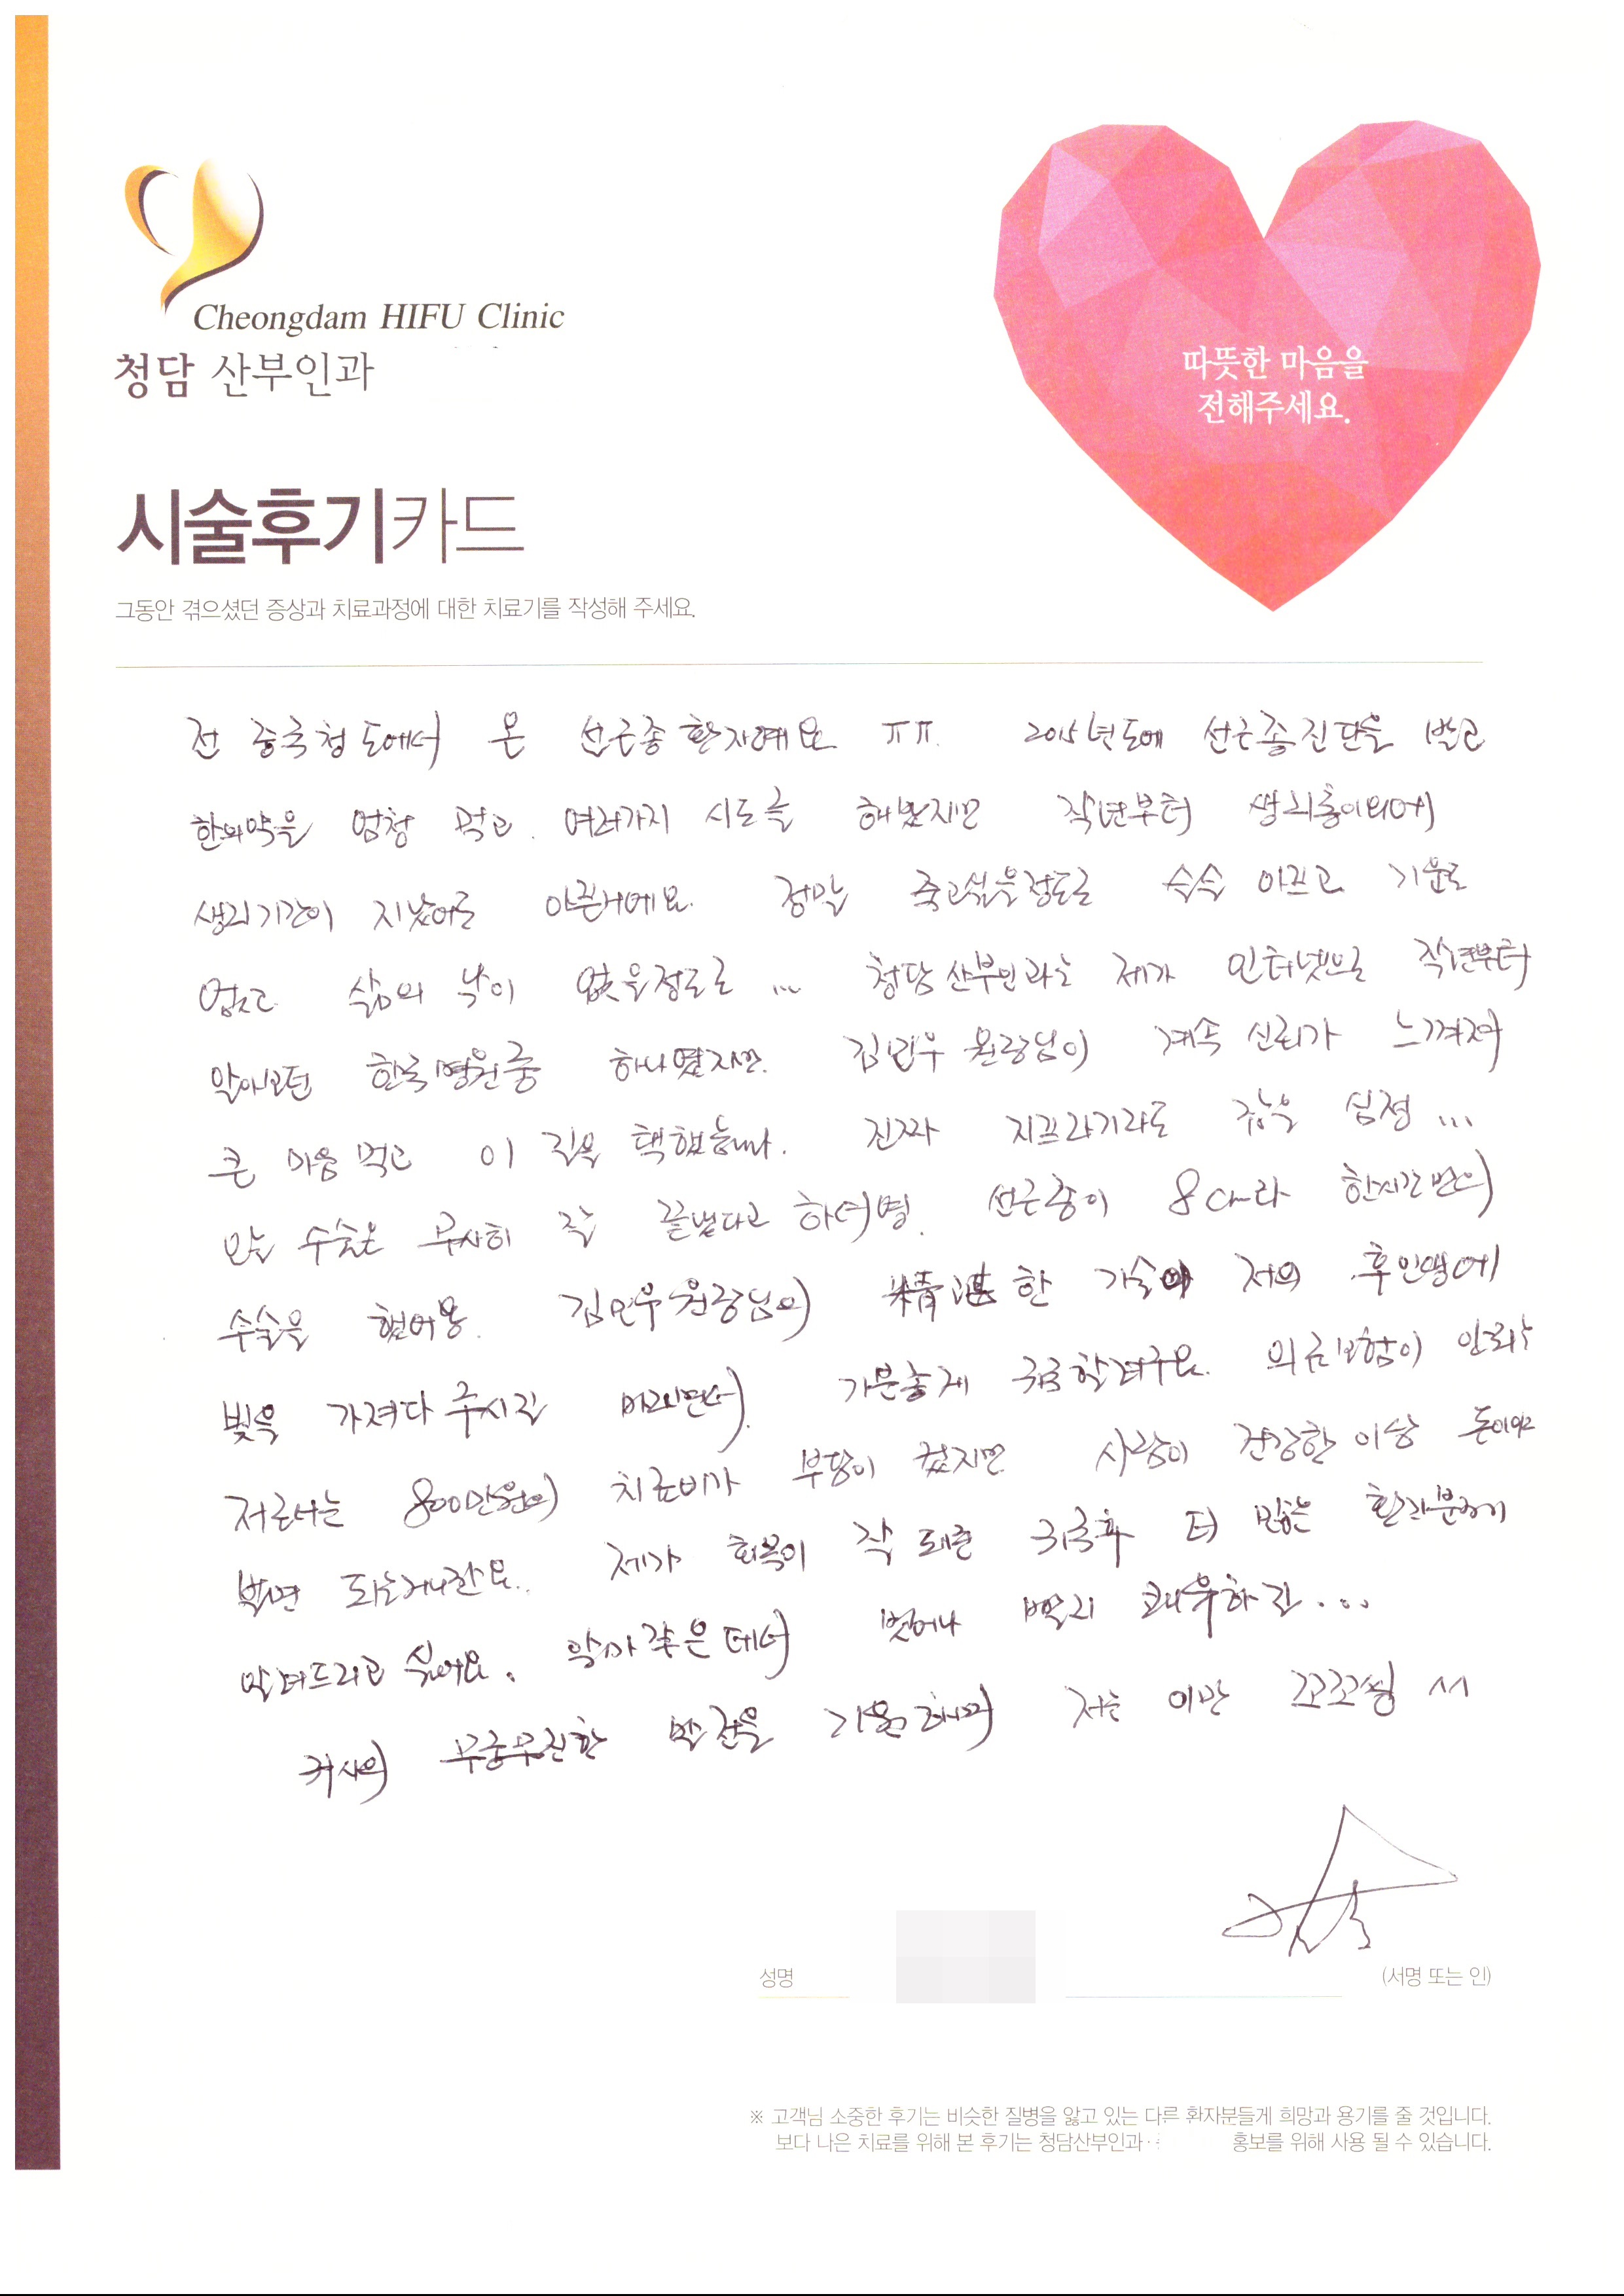 Cheongdam HIFU Clinic
청담 산부인과
따뜻한 마음을
전해주세요.
시술후기카드
그동안 겪으셨던 증상과 치료과정에 대한 치료기를 작성해 주세요.
전 중국청도에서 온 선근종환자예요 ㅠㅠ. 2015년도에 선근종진단을 받고
한의약을 엄청 먹고. 여러가지 시도를 해봤지만 작년부터 생리통이외에
생리기간이 지났어도 아픈거예요. 정말 죽고싶을정도로 속속 아프고 기운도
없고 삶의 낙이 없을정도로 ... 청담산부인과는 제가 인터넷으로 작년부터
알아보던 한국병원중 하나였지만. 김민우 원장님이 계속 신뢰가 느껴져
큰 마음먹고 이 길을 택했습니다. 진짜 지프라기라도 잡을 심정 ...
오늘 수술은 무사히 잘 끝났다고 하셔. 선근종이 8cm라 한시간반의
수술을 했어용. 김민우원장님의 精湛한 기술이 저의 후인생에
빛을 가져다 주시길 바라면서. 가문좋게 귀국할려구요. 의료보험이 안되는
저로서는 800만원의 치료비가 부담이 컸지만 사람이 건강한이상 돈이야
벌면 되는거니깐요.. 제가 회복이 잘 되면 귀국후 더 많은 환자분들께
알려드리고 싶어요. 악마같은 데서 벗어나 빨리 쾌유하길...
귀사의 무궁무진한 발전을 기원하며 저는 이만 꼬꼬씽 ^^
성명
(서명 또는 인)
※ 고객님 소중한 후기는 비슷한 질병을 앓고 있는 다른 환자분들게 희망과 용기를 줄 것입니다.
보다 나은 치료를 위해 본 후기는 청담산부인과· 홍보를 위해 사용 될 수 있습니다.